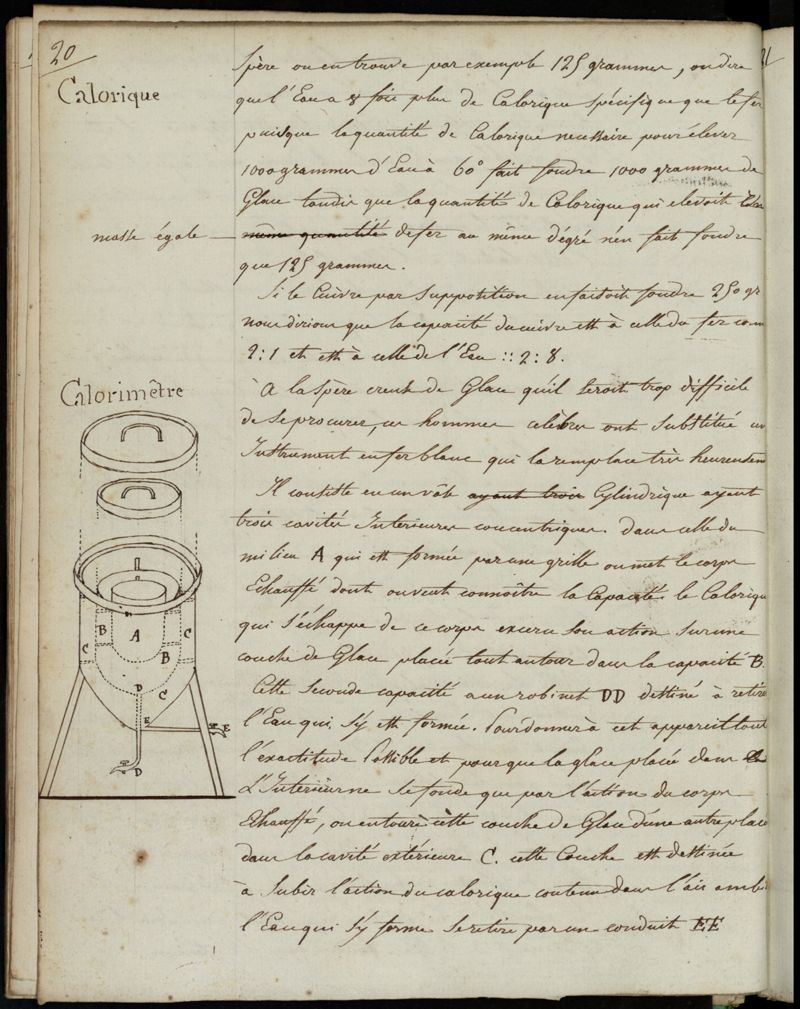 20
Calorique
Spère on en trouve par exemple 125 grammes, on dira
que l'Eau a 8 fois plus de Calorique spécifique que le fer
puisque la quantité de Calorique necessaire pour élever
1000 grammes d'Eau à 60° fait fondre 1000 grammes de
Glace tandis que la quantité de Calorique qui elevoit
masse égale
même quantité de fer au même dégré n'en fait fondre
que 125 grammes.
Si le Cuivre par Supposition en faisoit fondre 250 gr
nous dirions que la capacité du cuivre est à celle du fer com
2:1 et est à celle de l'Eau :: 2:8.
Calorimêtre
A la Spère creuse de Glace qu'il seroit trop difficile
de se procurer, ces hommes celèbres ont Substitué un
Instrument en fer blanc qui la remplace très heureusem
Il consiste en un vâse ayant trois Cylindrique ayant
trois cavités Interieures concentriques. Dans celle du
milieu A qui est formée par une grille on met le corps
Echauffé dont on veut connoître la Capacité. le Calorique
qui s'échappe de ce corps exerce son action sur une
couche de Glace placée tout autour dans la capacité B.
Cette Seconde capacité a un robinet DD destiné à retirer
l'Eau qui s'y est formée. Pour donner à cet appareil toute
l'exactitude Possible et pour que la glace placée dans
L'Interieur ne se fonde que par l'action du corps
Echauffé, on entoure cette couche de Glace d'une autre place
dans la cavité extérieure C. cette Couche est destinée
à Subir l'action du calorique contenu dans l'air amb
l'Eau qui s'y forme se retire par un conduit EE
A
B
B
B
C
C
C
D
E
E
D